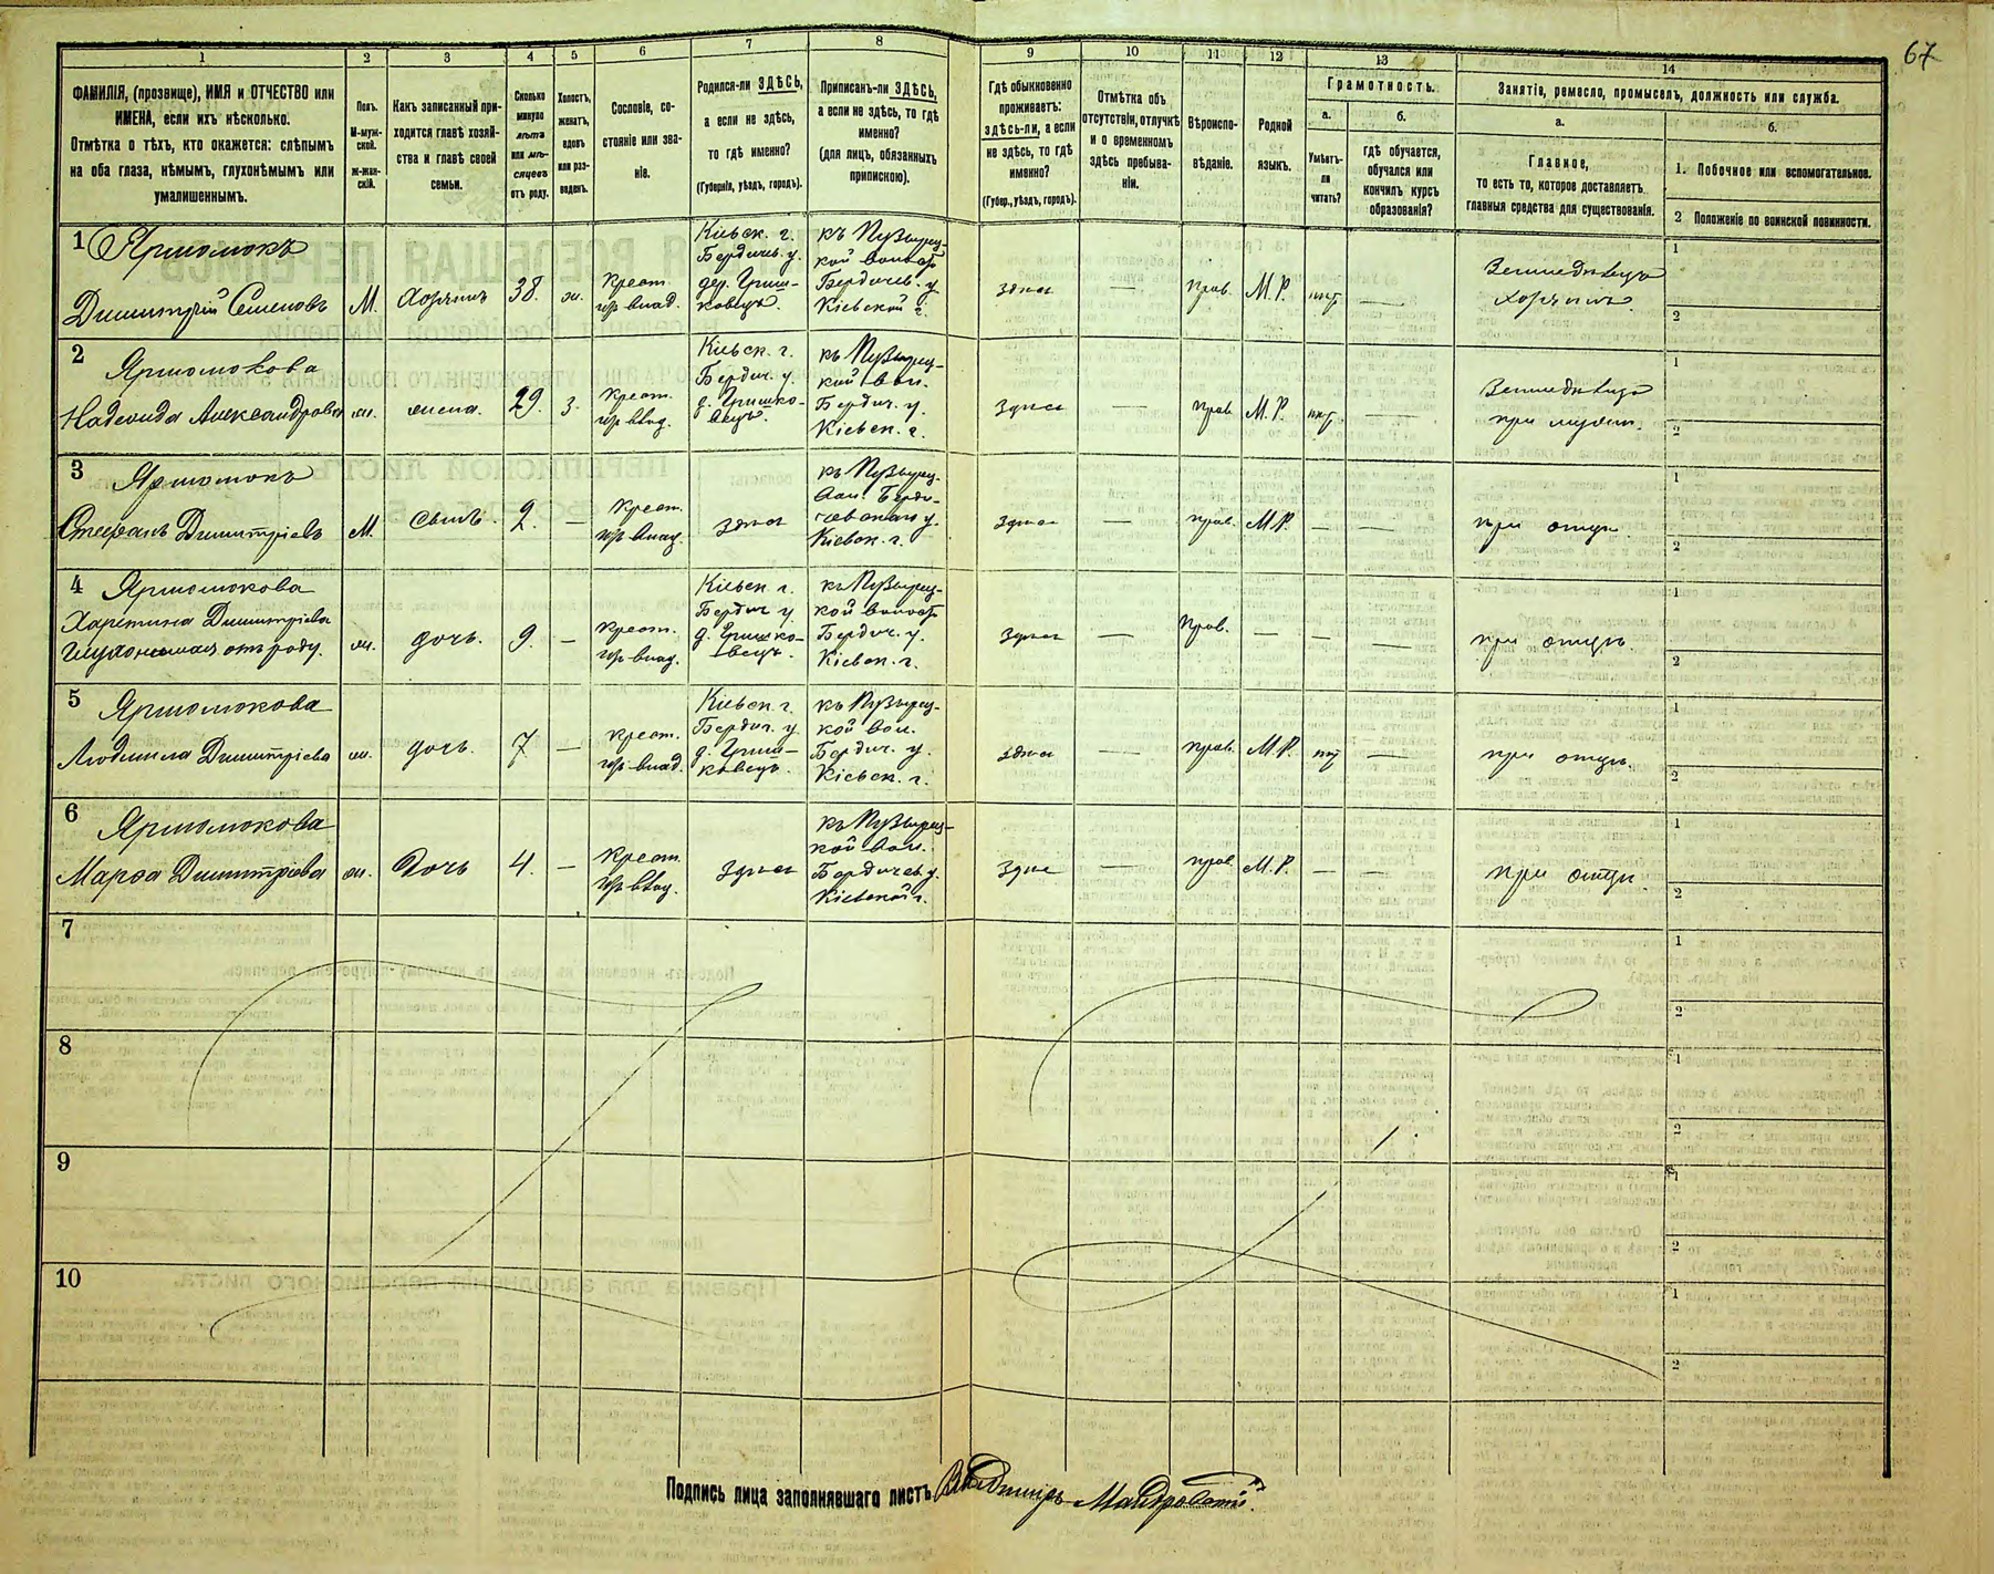 67
1
2
3
4
5
6
7
8
9
10
11
12
13
14
ФАМИЛІЯ, (прозвище), ИМЯ и ОТЧЕСТВО или
ИМЕНА, если ихъ нѣсколько.
Отмѣтка о тѣхъ, кто окажется: слѣпымъ
на оба глаза, нѣмымъ, глухонѣмымъ или
умалишеннымъ.
Полъ.
М-муж-
ской.
ж-жен-
скій.
Какъ записанный при-
ходится главѣ хозяй-
ства и главѣ своей
семьи.
Сколько
минуло
лѣтъ
или мѣ-
сяцевъ
отъ роду.
Холостъ,
женатъ,
вдовъ
или раз-
веденъ.
Сословіе, со-
стояніе или зва-
ніе.
Родился-ли ЗДѢСЬ,
а если не здѣсь,
то гдѣ именно?
(Губернія, уѣздъ, городъ).
Приписанъ-ли ЗДѢСЬ,
а если не здѣсь, то гдѣ
именно?
(для лицъ, обязанныхъ
припискою).
Гдѣ обыкновенно
проживаетъ:
здѣсь-ли, а если
не здѣсь, то гдѣ
именно?
(Губер., уѣздъ, городъ).
Отмѣтка объ
отсутствіи, отлучкѣ
и о временномъ
здѣсь пребыва-
ніи.
Вѣроиспо-
вѣданіе.
Родной
языкъ.
Грамотность.
а.
Умѣетъ-
ли
читать?
б.
гдѣ обучается,
обучался или
кончилъ курсъ
образованія?
Занятіе, ремесло, промыселъ, должность или служба.
а.
Главное,
то есть то, которое доставляетъ
главныя средства для существованія.
б.
1. Побочное или вспомогательное.
2 Положеніе по воинской повинности.
1 Ярмолюкъ
Димитрій Семеновъ
М.
Хозяинъ
38.
ж.
Крест.
Кіевск. г.
Бердичев. у.
дер. Гриш-
ковецъ.
къ Пузырец-
кой волост
Бердичев. у.
Кіевской г.
здѣсь
—
прав.
М. Р.
нѣт
—
Земледѣлецъ
хозяинъ
1
2
2
Ярмолюкова
Надежда Александрова
ж.
жена.
29.
з.
Крест.
Кіевск. г.
Бердич. у.
д. Гришко-
вецъ.
къ Пузырец-
кой вол.
Бердич. у.
Кіевск. г.
Здѣсь
—
прав
М. Р.
нѣт.
—
Земледѣлецъ
при мужѣ.
1
2
3
Ярмолюкъ
Стефанъ Димитріевъ
М.
Сынъ.
2.
—
Крест.
здѣсь
къ Пузырец.
вол. Берди-
чевскаго у.
Кіевск. г.
Здѣсь
—
прав.
М. Р.
—
—
при отцѣ.
1
2
4 Ярмолюкова
Харетина Димитріева
Глухонѣмая отъ роду.
ж.
дочь.
9.
—
Крест.
Кіевск г.
Бердич у.
д. Гришко-
вецъ.
къ Пузырец-
кой волост
Бердич. у.
Кіевск. г.
Здѣсь
—
Прав.
—
—
—
при отцѣ.
1
2
5 Ярмолюкова
Людмила Димитріева
ж.
дочь.
7
—
Крест.
Кіевск. г.
Бердич. у.
д. Гриш-
ковецъ.
къ Пузырец-
кой вол.
Бердич. у.
Кіевск. г.
здѣсь
—
прав.
М. Р.
нѣт
—
при отцѣ.
1
2
6
Ярмолюкова
Марѳа Димитріева
ж.
Дочь
4.
—
Крест.
Здѣсь
къ Пузырец-
кой вол.
Бердичев у.
Кіевской г.
Здѣс
—
прав.
М. Р.
—
—
при отцѣ.
1
2
7
1
2
8
1
2
9
1
2
10
1
2
Подпись лица заполнявшаго листъ Владимиръ